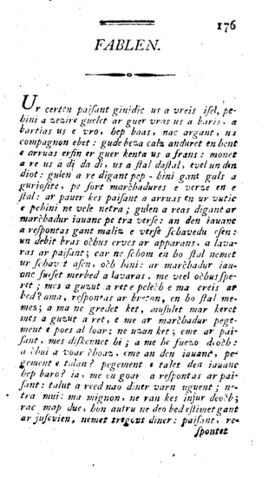 176
FABLEN.
Ur certen paisant ginidic us a vreis isel, pe-
bini a zezire guelet ar guer vras us a baris, a
bartias us e vro, hep boas, nac argant, na
compagnon ebet: gude beza calz anduret en hent
e arruas erfin er guer kenta us a frans: monet
a re us a di da di, us a stal dastal, evel un den
diot: gulen a re digant pep-bini gant gals a
guriosite, pe sort marc̃hadures e verze en e
stal: ar pauer kes paisant a arruas en ur vutic
e pehini ne vele netra; gulen a reas digant ar
marc̃hadur iauanc pe tra verse: an den iauanc
a respontas gant maliz e verse
un debit bras ocbus erves ar apparans, a lava-
ras ar paisant; car ne schom en bo stal nemet
ur ar marc̃hadur iau-
anc fuset merbed a lavaras. me vel ocbasspe-
ret; mes a guzut a ret e pelec̃b e ma creis ar
bed? ama, respontas ar brezon, en bo stal me-
mes; a ma ne gredet ket, musulet mar keret
mes a guzut a ret, e me ar marc̃hadur pege-
ment e poes al loar: ne uzan ket; eme ar pai-
sant; mes discennet bi; a me he fuezo
a c̃hui a voar c̃hoaz, eme an den iauanc, pe-
gement e talan? pegement e talet den iauanc
hep baro? ia, me en goar a respontas ar pai-
sant: talut a reed nao diner varn uguent; ne-
tra mui: ma mignon, ne ran kes injur deoc̃b;
rac map due, hon autru ne deo bed estimet gant
ar jusevien, nemet trugons diner: paisant, re-
spontet